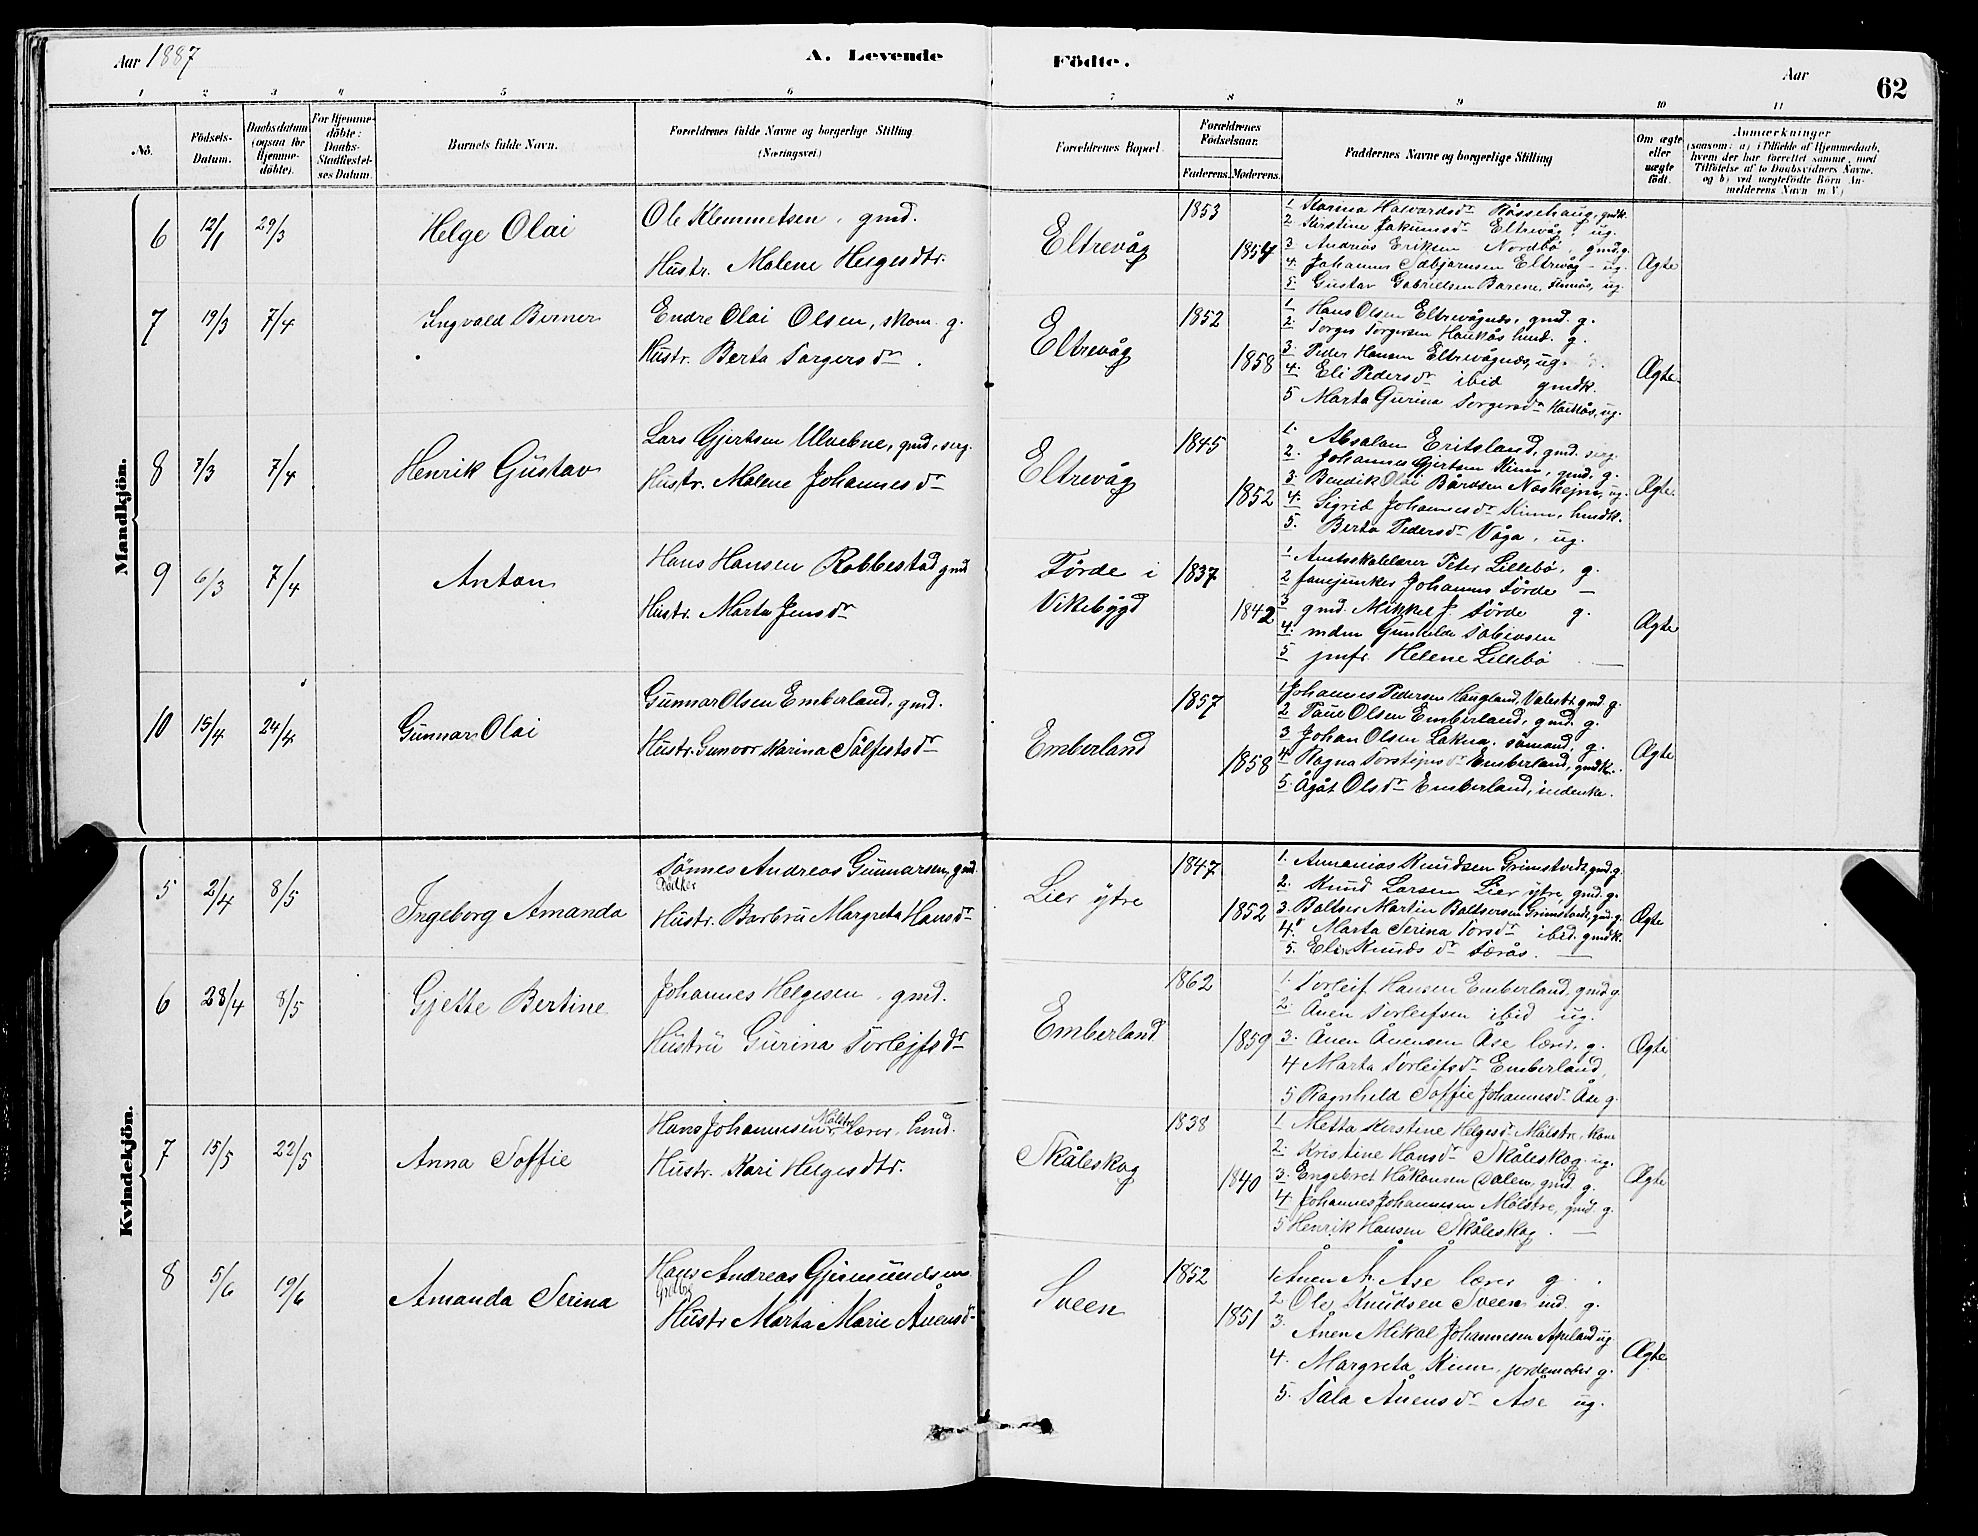 Aar 1887
A. Levende
Födte.
Aar
62
1 2 3 4 5 6 7 8 9 10 11
No.
Födsels-Datum.
Daabsdatum (ogsaa for Hjemme-döbte).
For Hjemme-döbte: Daabs-Stadfæstel-ses Datum.
Barnets fulde Navn.
Forældrenes fulde Navne og borgerlige Stilling (Næringsvei.)
Forældrenes Bopæl.
Forældrenes Födselsaar.
Faderens. Moderens.
Faddernes Navne og borgerlige Stilling
Om ægte eller uægte födt.
Anmærkninger
(saasom: a) i Tilfælde af Hjemmedaab,
hvem der har forrettet samme, med
Tilföielse af to Daabsvidners Navne.
og b) ved uægtefödte Börn An-
melderens Navn m. V.)
Mandkjön.
6 12/1 29/3 Helge Olai
Ole Klemmetsen, gmd.
Hustr. Malene Helgesdtr.
Eltrevåg 1853 1854
1 Karina Halvardsdr Råssehaug, gmdk.
2 Kirstine Jakumsdr Eltrevåg, ug.
3 Andreas Eriksen Nordbö, gmd. g.
4. Johannes Eltrevåg - ug.
5. Gustav Gabrielsen ug.
Ægte
7 19/3 7/4 Ingvald Berner
Endre Olai Olsen, skom. g.
Hustr. Berta Torgersdr.
Eltrevåg 1852 1858
1. Hans Olsen Eltrevågnes, gmd. g.
2. Torger Torgersen Haukås husd. g.
3. Peder Hansen Eltrevågnes, ug.
4. Eli Pedersdr ibid gmdk.
5 Marta Gurina Torgersdr Haukås, ug.
Ægte
8 7/3 7/4 Henrik Gustav
Lars Gjertsen Ulvebne, gmd, serg.
Hustr. Malene Johannesdr
Eltrevåg 1845 1852
1. Absalon Eritsland, gmd. serg.
2. Johannes Gjertsen Kinn, gmd. g.
3. Bendik Olai Bårdsen ug.
4. Sigrid Johannesdr Kinn, husdk.
5. Berta Pedersdr Våga, ug.
Ægte
9 6/3 7/4 Anton
Hans Hansen Robbestad gmd
Hustr. Marta Jensdr
Förde i Vikebygd 1837 1842
1. Amtsskolelærer Peter Lillebö, g.
2 fanejunker Johannes Förde —
3 gmd. Mikkel J. Förde g.
4. mdm Gunhilde Tobiasen
5 jmfr. Helene Lillebö —
Ægte
10 15/4 24/4 Gunnar Olai
Gunnar Olsen Emberland, gmd.
Hustr. Gunvor Karina Sålfestsdr
Emberland 1857 1858
1 Johannes Pedersen Haugland, Valestr. gmd g.
2 Paul Olsen Emberland, gmd. g.
3 Johan Olsen Lakna. sömand. g.
4 Ragna Torstensdr Emberland, gmdk.
5. Ågåt Olsdr Emberland, indenke.
Ægte
Kvindekjön.
5 2/4 8/5 Ingeborg Amanda
Tönnes Andreas Gunnarsen, gmd.
Bödker
Hustr. Barbru Margreta Hansdr
Lier ytre 1847 1852
1. Annanias Knudsen Grimstvedt, gmd. g.
2. Knud Larsen Lier ytre, gmd. g.
3. Baltser Martin Baltsersen Grimstvedt, gmd. g.
4. Marta Serina Torsdr ibid. gmdk.
5. Eli Knudsdr Færås. —
Ægte
6 28/4 8/5 Gjette Bertine
Johannes Helgesen, gmd.
Hustru Gurina Torlejfsdr
Emberland 1862 1859
1. Torleif Hansen Emberland, gmd g.
2. Ånen Torleifsen ibid ug.
3. Ånen Ånensen Åse lærer, g.
4 Marta Torleifsdr Emberland,
5 Ragnhild Soffie Johannesdr Åse g.
Ægte
7 15/5 22/5 Anna Soffie
Hans Johannesen Målstre lærer. husd.
Hustr. Kari Helgesdtr.
Skåleskog 1838 1840
1 Metta Kirstine Helgesdr Målstre, kone
2. Kristine Hansdr Skåleskog ug.
3. Engebret Håkonsen Dalen, gmd. g.
4. Johannes Johannesen Målstre, gmd. g.
5 Henrik Hansen Skåleskog. —
Ægte
8 5/6 19/6 Amanda Serina
Hans Andreas Gjermundsen
Hustr Marta Marie Ånensdr
Sveen 1852 1851
1. Ånen A. Åse lærer g.
2 Ole Knudsen Sveen md. g.
3. Ånen Mikal Johannesen ug
4. Margreta Kinn, jordemoder g.
5. Tala Ånensdr Åse ug.
Ægte